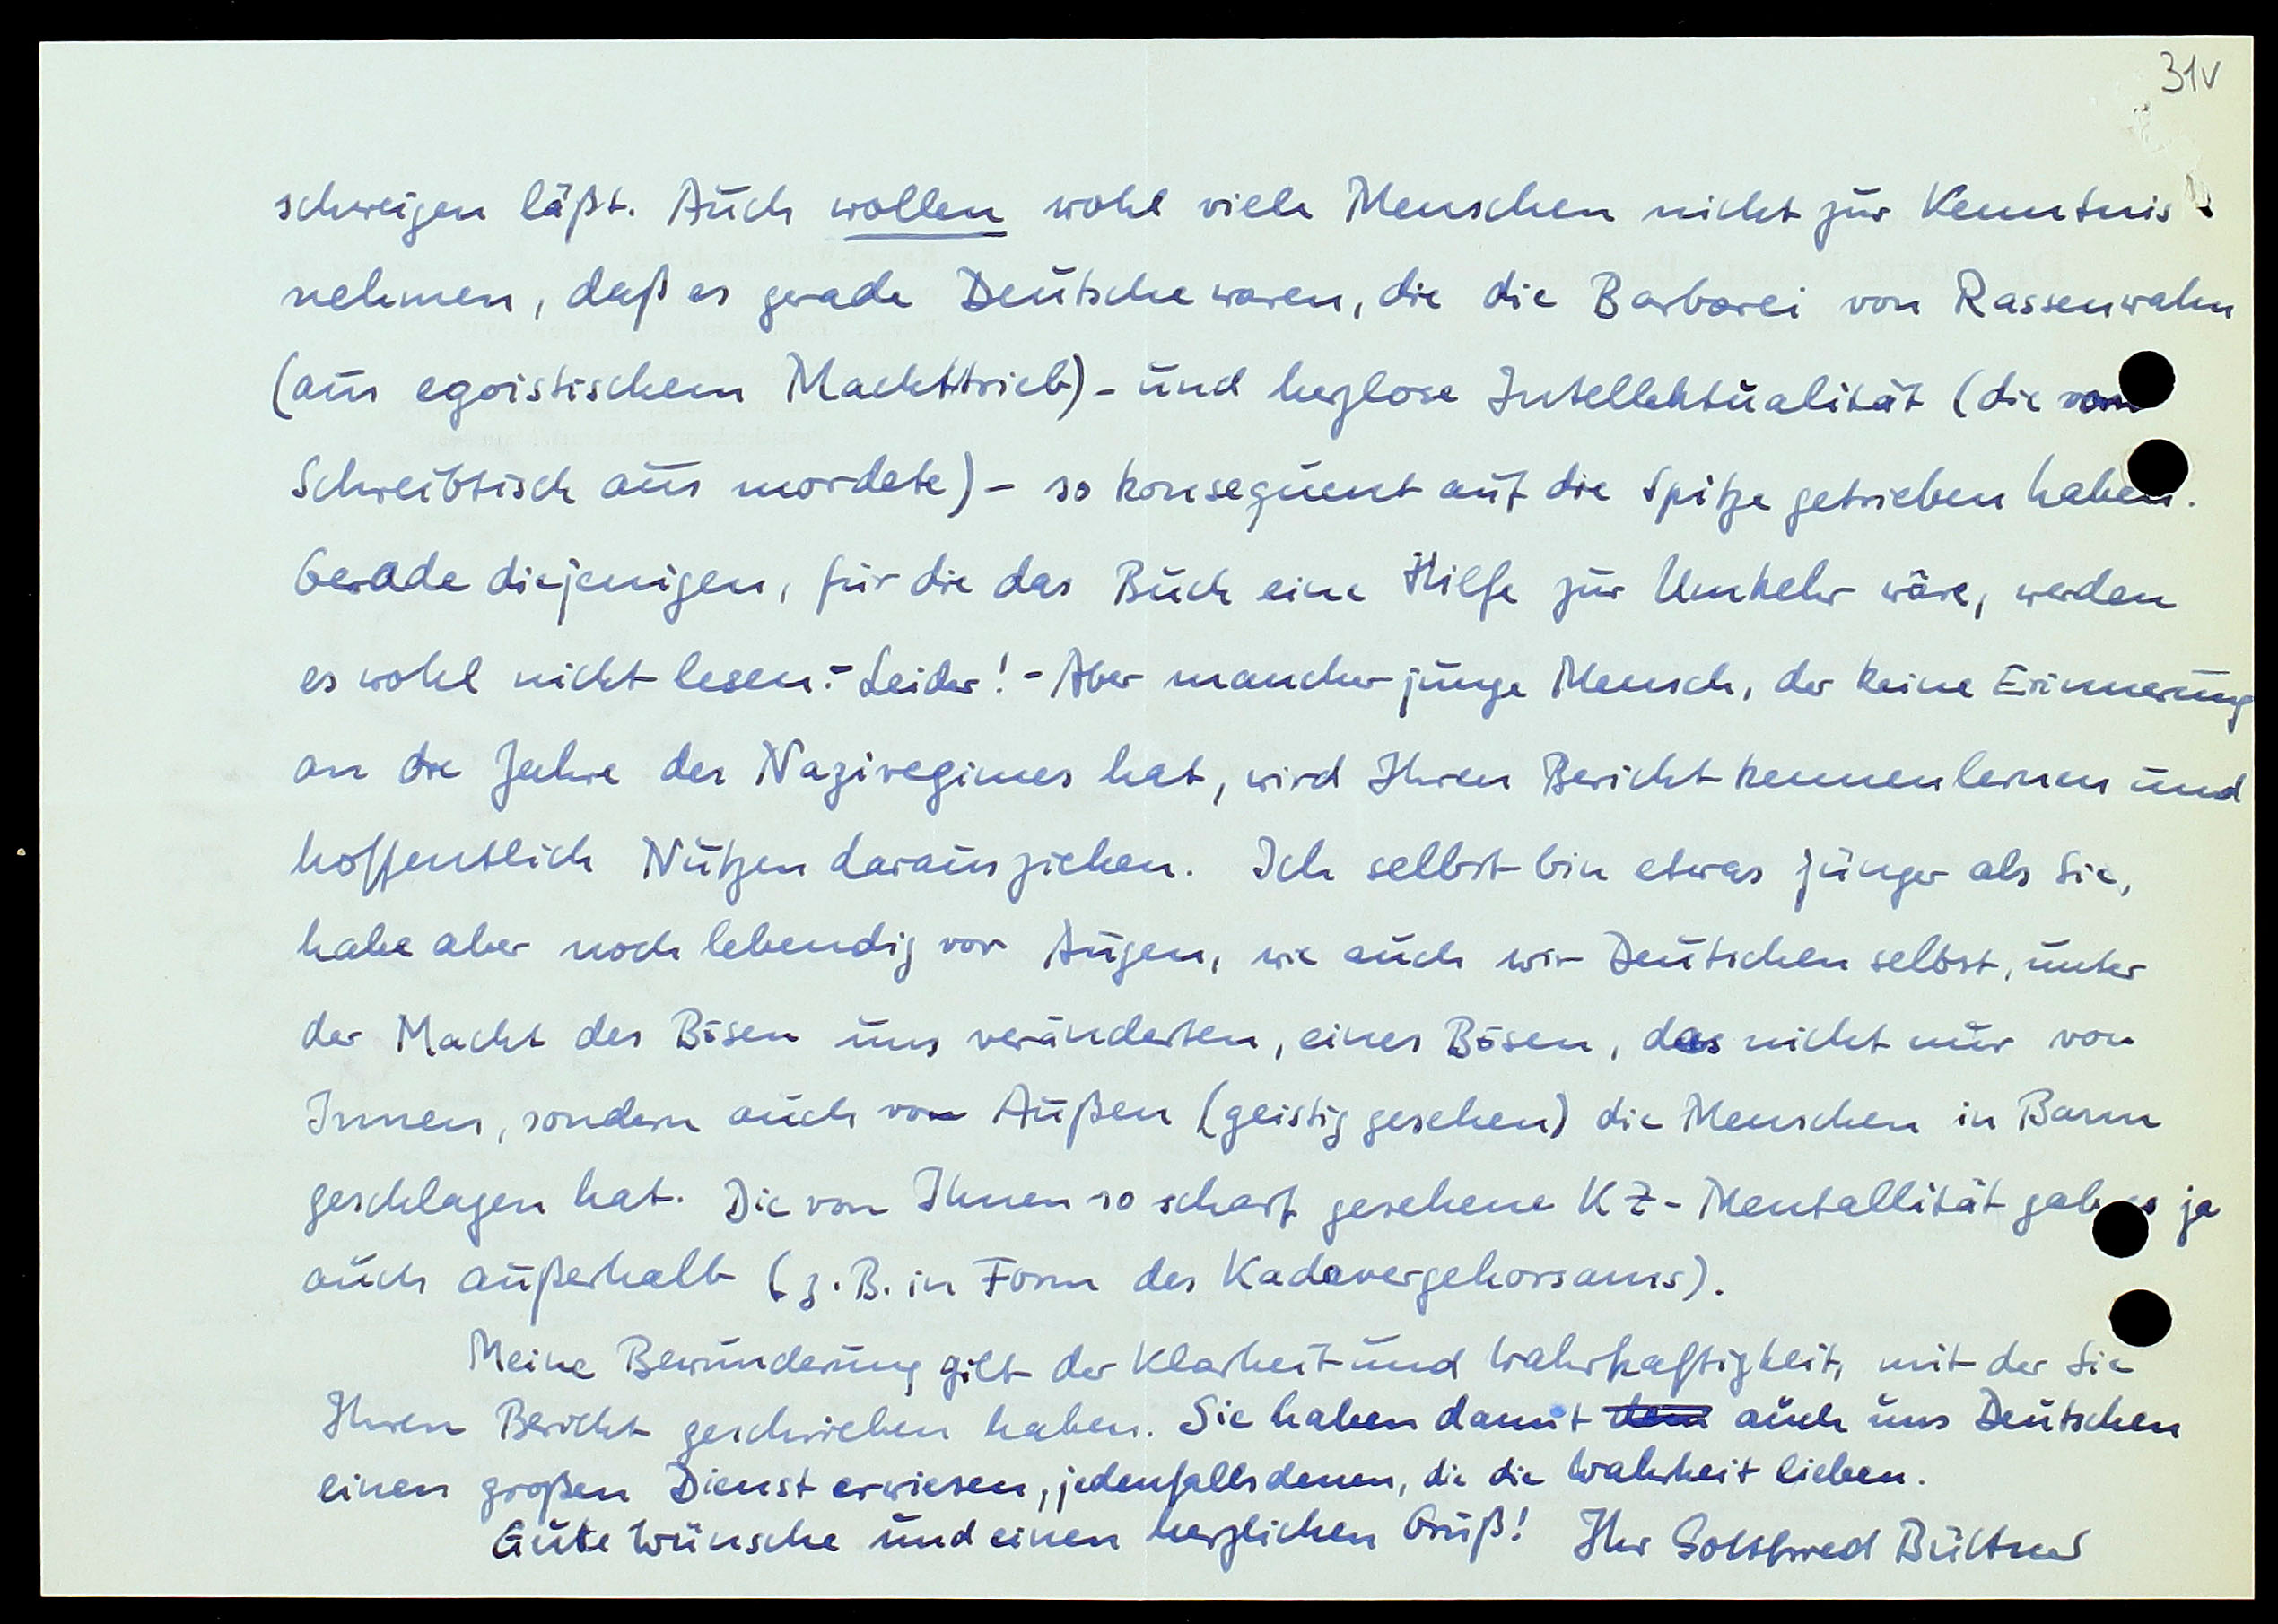 31v
schweigen läßt. Auch wollen wohl viele Menschen nicht zur Kenntnis
nehmen, daß es gerade Deutsche waren, die die Barbarei von Rassenwahn
(aus egoistischem Machttrieb) - und herzlose Intellektualität (die vom
Schreibtisch aus mordete) - so konsequent auf die Spitze getrieben haben.
Gerade diejenigen, für die das Buch eine Hilfe zur Umkehr wäre, werden
es wohl nicht lesen. - Leider! - Aber mancher junge Mensch, der keine Erinnerung
an die Jahre des Naziregimes hat, wird Ihren Bericht kennenlernen und
hoffentlich Nutzen daraus ziehen. Ich selbst bin etwas jünger als Sie,
habe aber noch lebendig vor Augen, wie auch wir Deutschen selbst, unter
der Macht des Bösen uns veränderten, eines Bösen, das nicht nur von
Innen, sondern auch von Außen (geistig gesehen) die Menschen in Bann
geschlagen hat. Die von Ihnen so scharf gesehene KZ-Mentallität gab es ja
auch außerhalb (z.B. in Form des Kadavergehorsams).
Meine Bewunderung gilt der Klarheit und Wahrhaftigkeit, mit der Sie
Ihren Bericht geschrieben haben. Sie haben damit auch uns Deutschen
einen großen Dienst erwiesen, jedenfalls denen, die die Wahrheit lieben.
Gute Wünsche und einen herzlichen Gruß! Ihr Gottfried Büttner